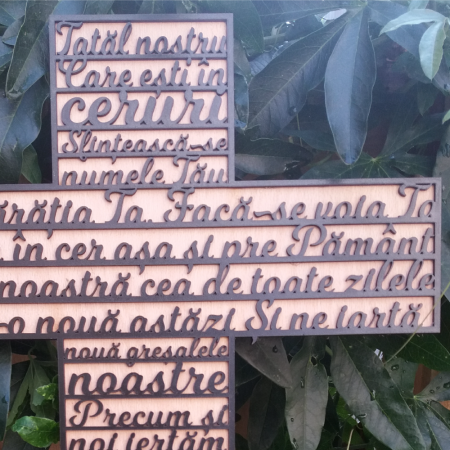 Tatăl nostru
Care ești în
ceruri
Sfințească-se
numele Tău
ărăția Ta, Facă-se voia Ta
în cer așa și pre Pământ
noastră cea de toate zilele
-o nouă astăzi Și ne iartă
nouă greșalele
noastre
Precum și
noi iertăm